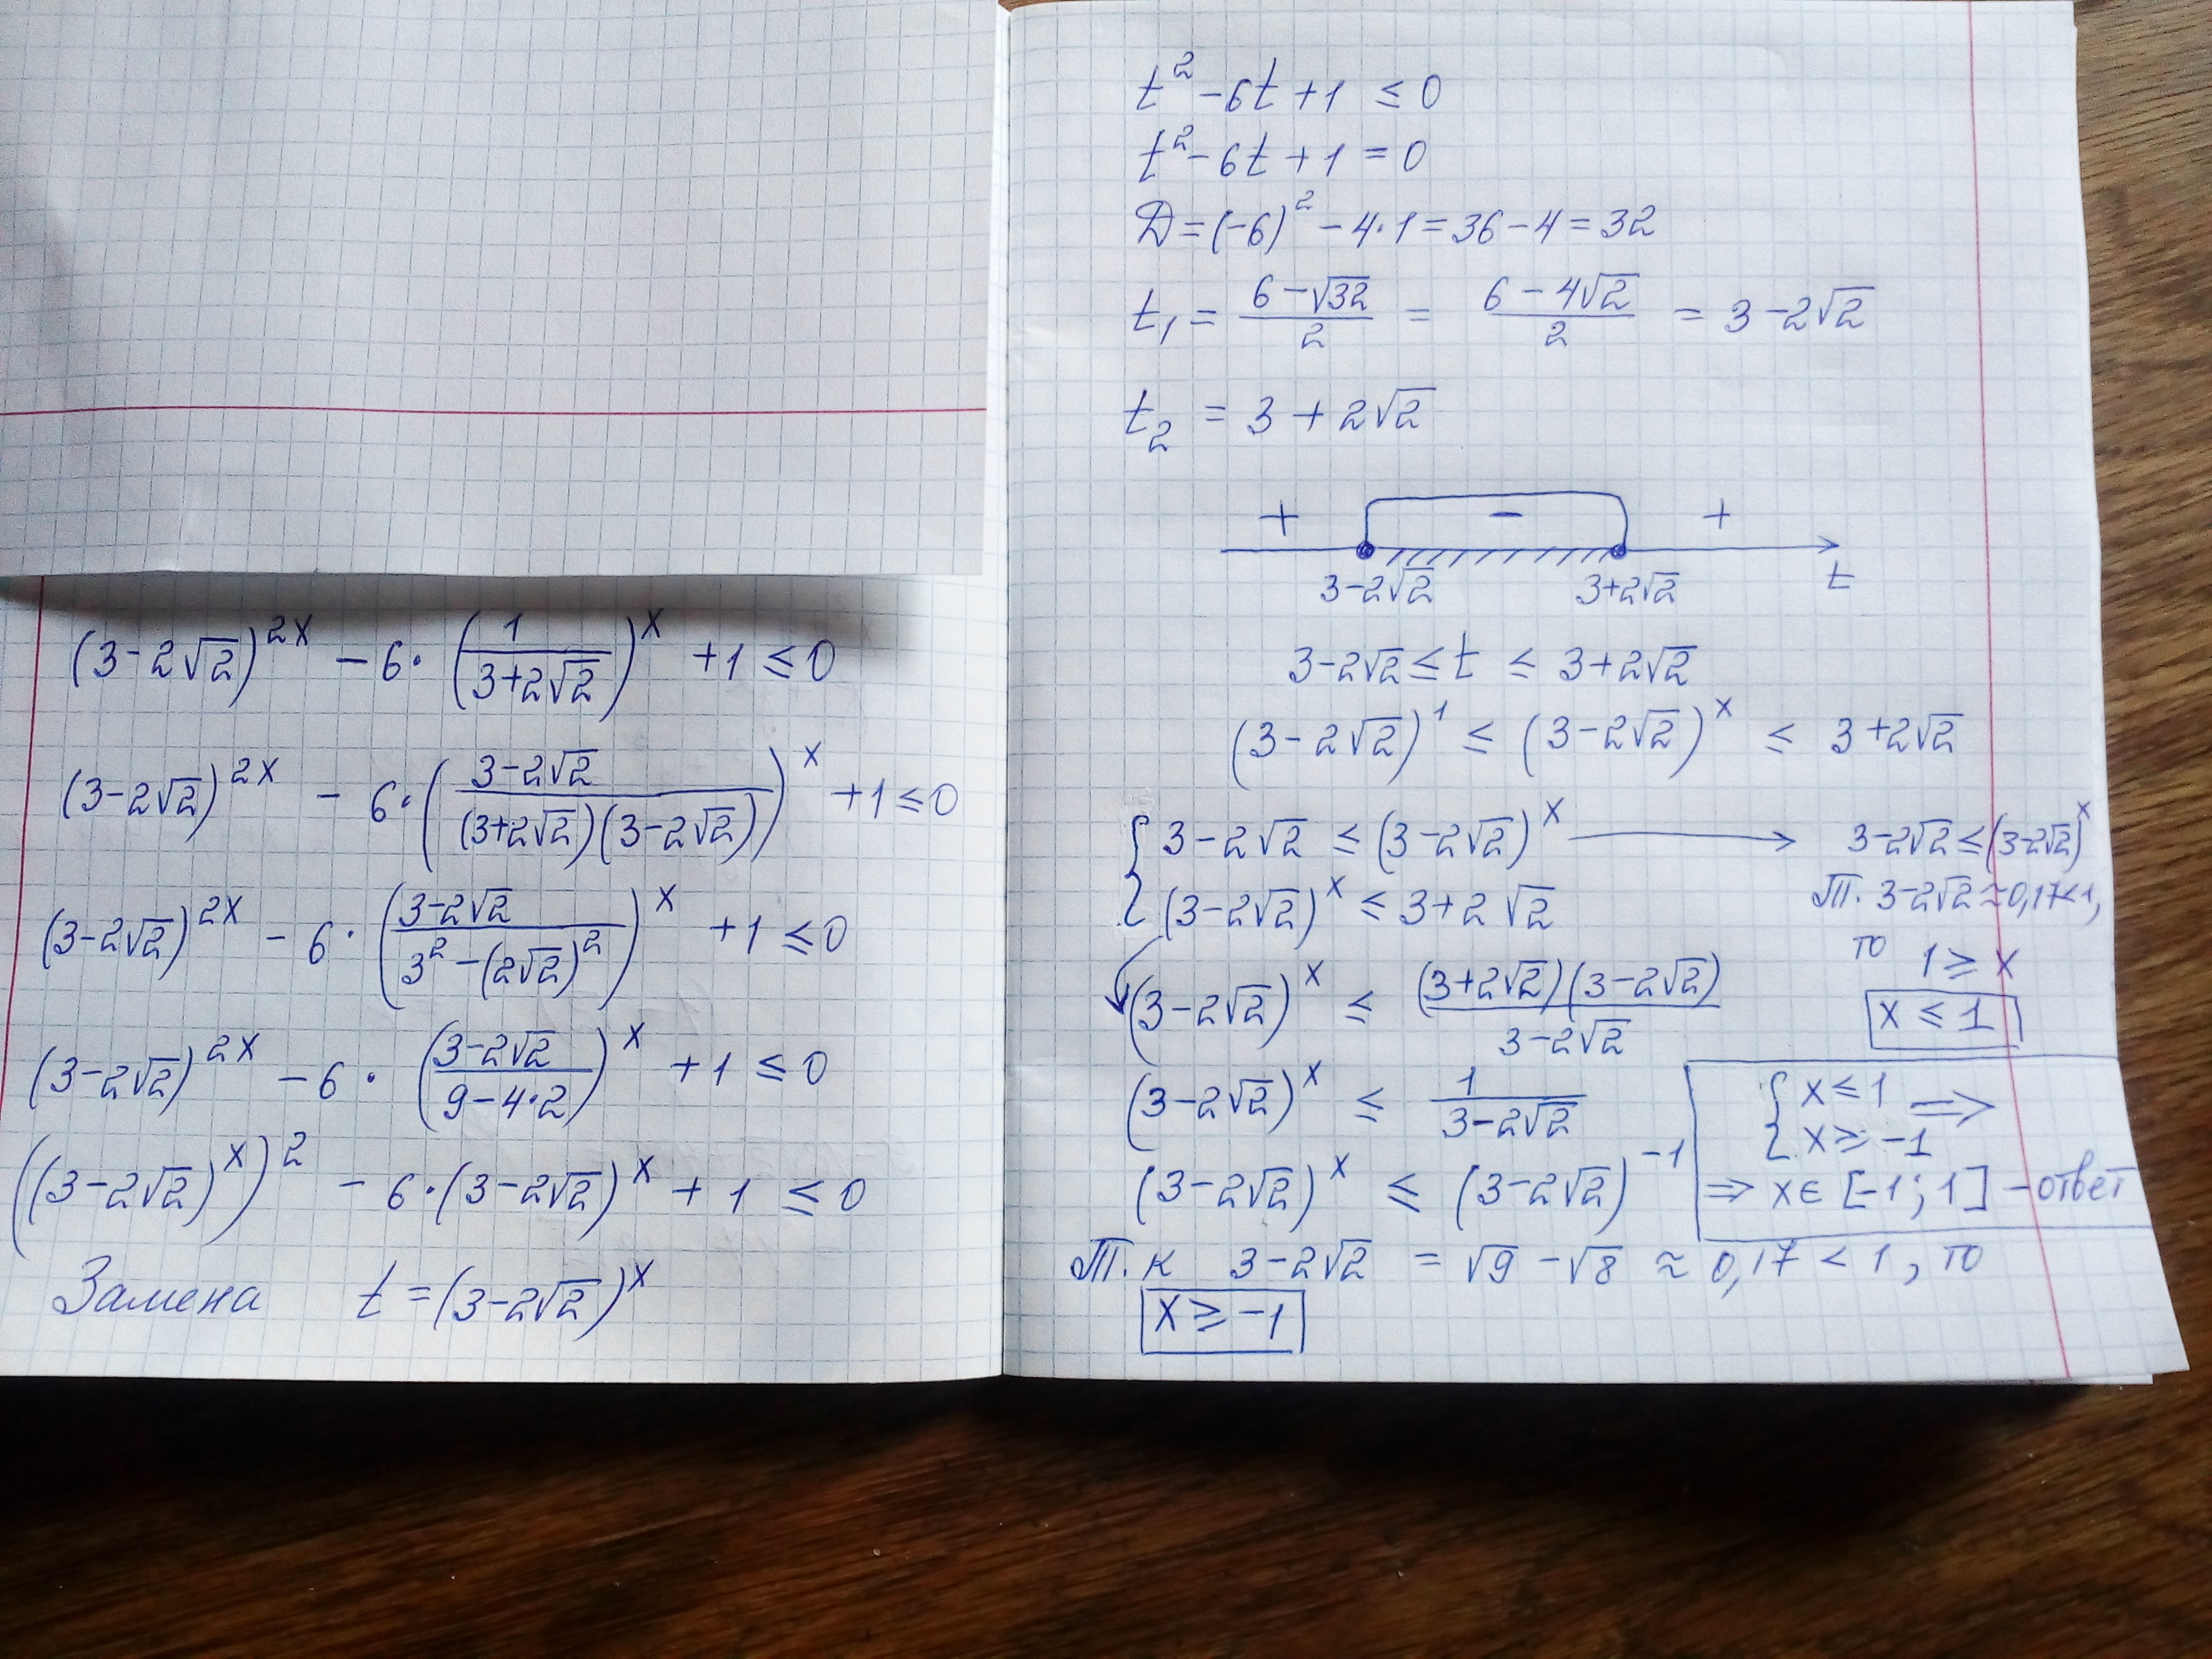 (3-2√2)^{2x} - 6·(1/(3+2√2))^x + 1 ≤ 0
(3-2√2)^{2x} - 6·((3-2√2)/((3+2√2)(3-2√2)))^x + 1 ≤ 0
(3-2√2)^{2x} - 6·((3-2√2)/(3²-(2√2)²))^x + 1 ≤ 0
(3-2√2)^{2x} - 6·((3-2√2)/(9-4·2))^x + 1 ≤ 0
((3-2√2)^x)² - 6·(3-2√2)^x + 1 ≤ 0
Замена t = (3-2√2)^x
t² - 6t + 1 ≤ 0
t² - 6t + 1 = 0
D = (-6)² - 4·1 = 36 - 4 = 32
t₁ = (6-√32)/2 = (6-4√2)/2 = 3-2√2
t₂ = 3+2√2
+ - +
3-2√2 3+2√2 t
3-2√2 ≤ t ≤ 3+2√2
(3-2√2)^1 ≤ (3-2√2)^x ≤ 3+2√2
{ 3-2√2 ≤ (3-2√2)^x →
(3-2√2)^x ≤ 3+2√2
3-2√2 ≤ (3-2√2)^x
Т. 3-2√2 ≈ 0,17 < 1,
то 1 ≥ x
x ≤ 1
(3-2√2)^x ≤ ((3+2√2)(3-2√2))/(3-2√2)
(3-2√2)^x ≤ 1/(3-2√2)
(3-2√2)^x ≤ (3-2√2)^{-1}
Т.к 3-2√2 = √9 - √8 ≈ 0,17 < 1, то
x ≥ -1
{ x ≤ 1 ⇒
x ≥ -1
⇒ x ∈ [-1; 1] - ответ